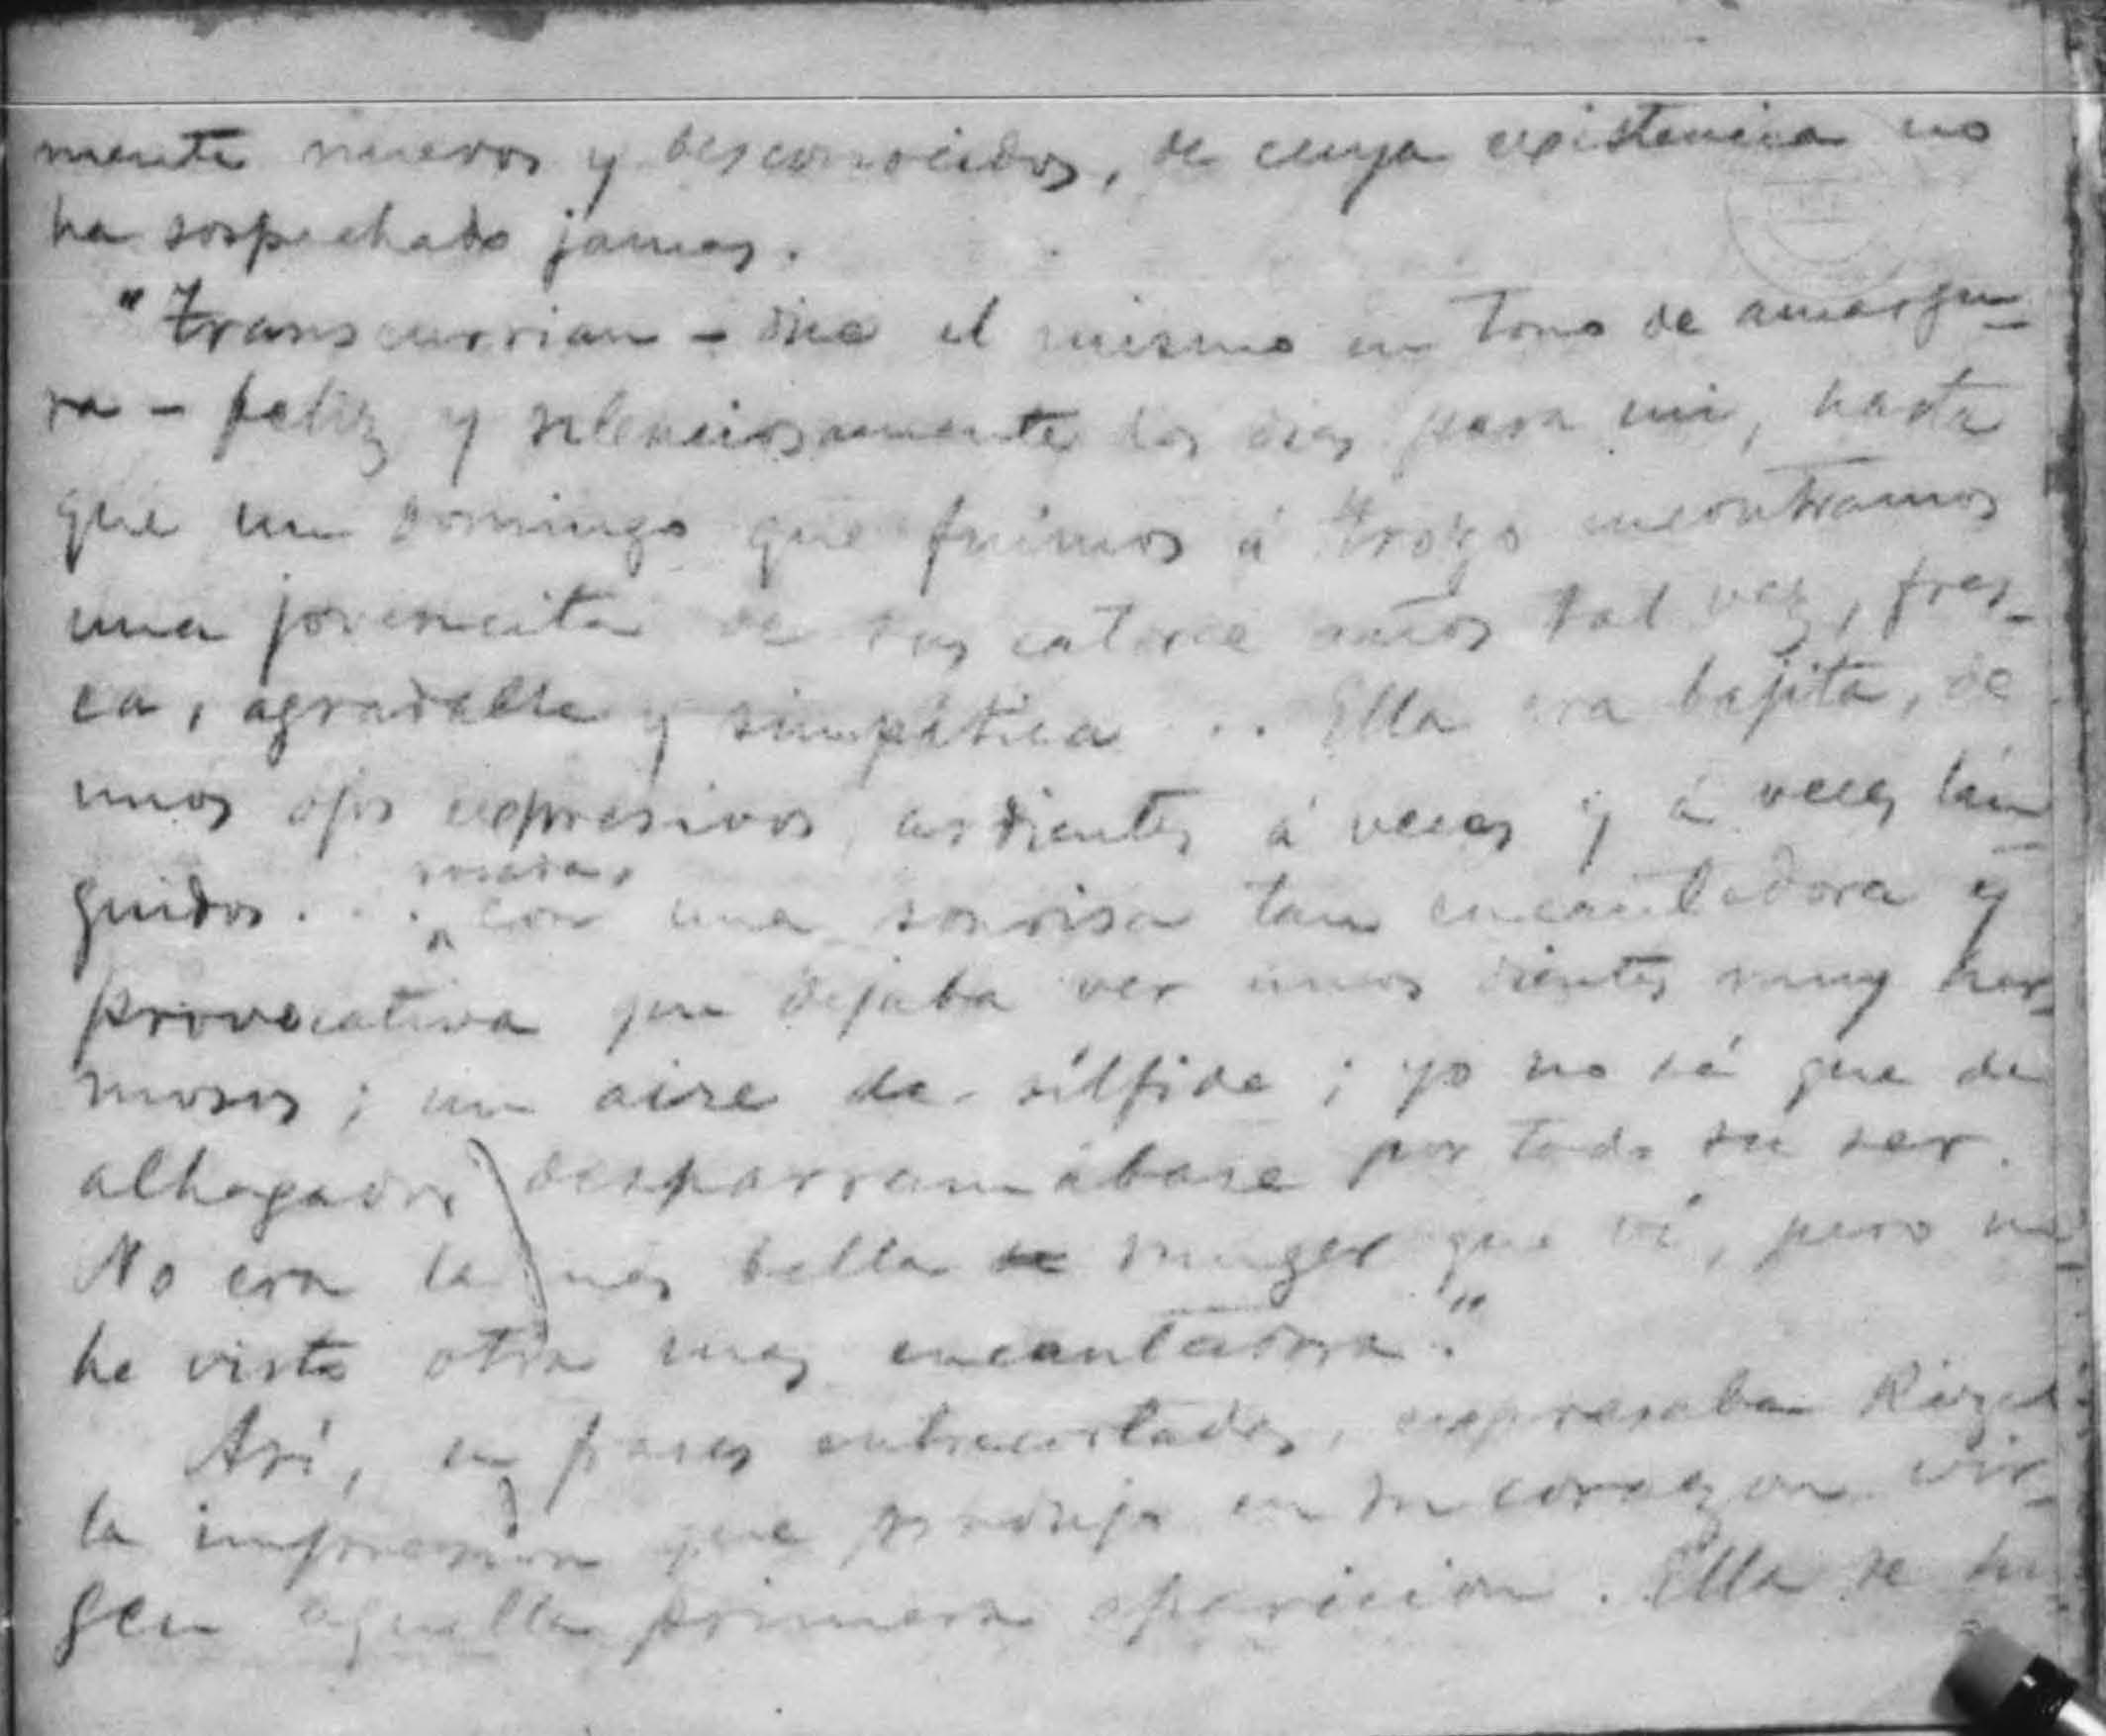 mente nuevos y desconocidos, de cuya existencia no
ha sospechado jamas.
"Transcurrian – dice el mismo en tono de amargu-
ra – feliz y silenciosamente los dias para mi, hasta
que un domingo que fuimos á Trozo encontramos
una jovencita de sus catorce años tal vez, fres-
ca, agradable y simpática ... Ella era bajita, de
unos ojos expresivos, ardientes á veces y á veces lán-
guidos. . . rosada,
con una sonrisa tan encantadora y
provocativa que dejaba ver unos dientes muy her-
mosos; un aire de sílfide; yo no sé que de
alhagador desparramábase por todo su ser.
No era la mas bella muger que ví, pero no
he visto otra mas encantadora."
Así, en frases entrecortadas, expresaba Rizal
la impresion que produjo en su corazon vir-
gen aquella primera aparicion. Ella se